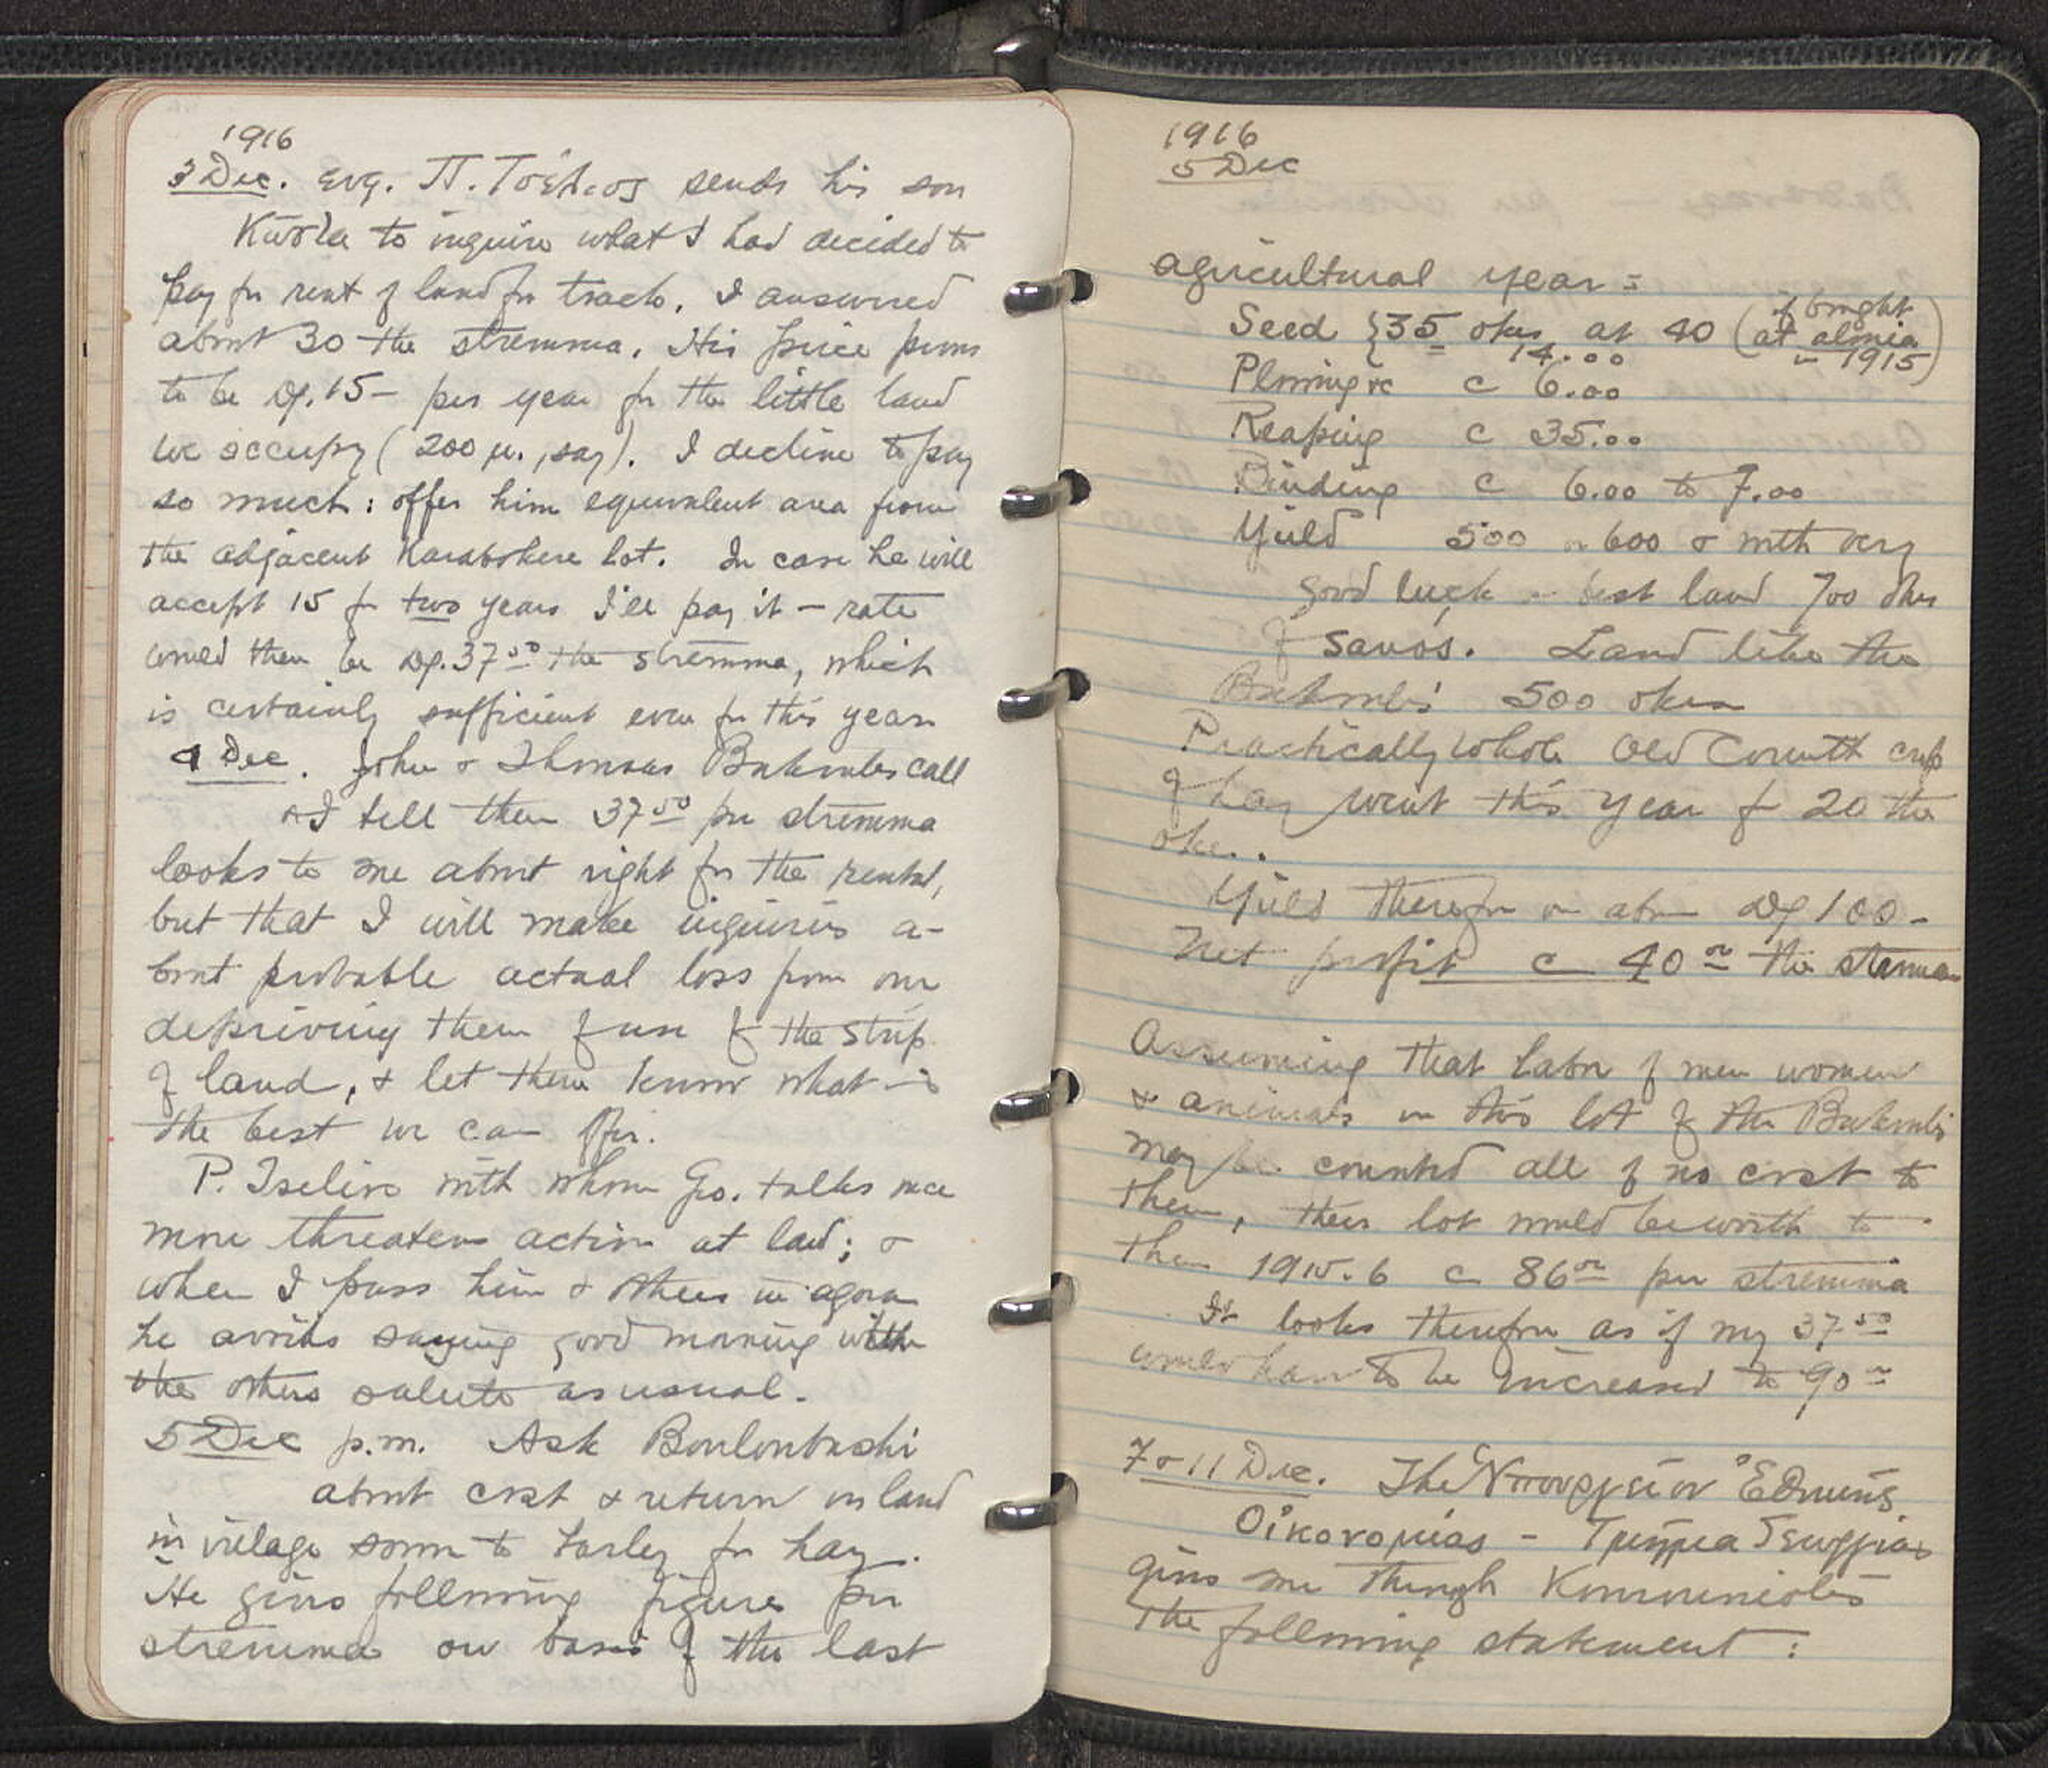 1916
3 Dec. evg. Π. sends his son
to inquire what I had decided to
pay for rent of land for track. I answered
about 30 the stremma. His price
to be Δρ. 15– per year for the little land
we occupy (200 μ., say). I decline to pay
so much: offer him equivalent area from
the adjacent lot. In case he will
accept 15 for two years I'll pay it – rate
would then be Δρ. 37 50 the stremma, which
is certainly sufficient even for this year
4 Dec. John & Thomas call
& I tell them 37 50 per stremma
looks to me about right for the rental,
but that I will make inquiries a-
bout probable actual loss from our
depriving them of use of the strip
of land, & let them know what is
the best we can offer.
P. Tselios with whom Geo. talks once
more threatens action at law; &
when I pass him & others in agora
he avoids saying good morning while
the others salute as usual.
5 Dec p.m. Ask Bouloubashi
about cost & return on land
in village sown to barley for hay.
He gives following figures per
stremma on basis of the last
1916
5 Dec
agricultural year =
Seed {35 okes at 40 (if bought
14.00 at almia in 1915)
Plowing &c c 6.00
Reaping c 35.00
Binding c 6.00 to 7.00
Yield 500 or 600 & with very
good luck or best land 700 okes
of σανός. Land like the
500 okes
Practically whole Old Corinth crop
of hay went this year for 20 the
oke.
Yield therefore in Δρ 100–
Net profit c 40 00 the stremma
Assuming that labor of men women
& animals on this lot of the
may be counted all of no cost to
them, their lot would be worth to
them 1915-6 c 86 00 per stremma
It looks therefore as if my 37 50
would have to be increased to 90 00
7 & 11 Dec. The Ὑπουργεῖον Ἐθνικῆς
Οἰκονομίας – Τμῆμα Γεωργίας
gives me through
the following statement: